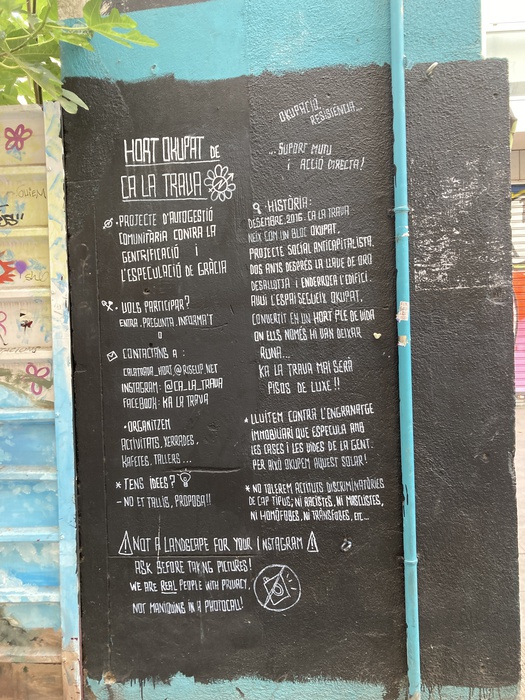 HORT OKUPAT DE
CA LA TRAVA
·PROJECTE D'AUTOGESTIÓ
COMUNITÀRIA CONTRA LA
GENTRIFICACIÓ I
L'ESPECULACIÓ DE GRÀCIA
· VOLS PARTICIPAR?
ENTRA, PREGUNTA, INFORMA'T
O
CONTACTANS A :
CALATRAVA_HORT@RISEUP.NET
INSTAGRAM: @CA_LA_TRAVA
FACEBOOK: KA LA TRAVA
·ORGANITZEM
ACTIVITATS, XERRADES,
KAFETES, TALLERS ...
* TENS IDEES?
- NO ET TALLIS, PROPOSA!!
OKUPACIÓ,
RESISTENCIA...
...SUPORT MUTU
I ACCIÓ DIRECTA!
·HISTÒRIA:
DESEMBRE 2016. CA LA TRAVA
NEIX COM UN BLOC OKUPAT,
PROJECTE SOCIAL ANTICAPITALISTA.
DOS ANYS DESPRÉS LA LLAVE DE ORO
DESALLOTJA I ENDERROCA L'EDIFICI.
AVUI L'ESPAI SEGUEIX OKUPAT,
CONVERTIT EN UN HORT PLE DE VIDA
ON ELLS NOMÉS HI VAN DEIXAR
RUNA...
KA LA TRAVA MAI SERÀ
PISOS DE LUXE!!
* LLUITEM CONTRA L'ENGRANATGE
IMMOBILIARI QUE ESPECULA AMB
LES CASES I LES VIDES DE LA GENT.
PER AIXÒ OKUPEM AQUEST SOLAR!
* NO TOLEREM ACTITUTS DISCRIMINATÒRIES
DE CAP TIPUS; NI RACISTES, NI MASCLISTES,
NI HOMÒFOBES, NI TRANSFOBES, ETC...
NOT A LANDSCAPE FOR YOUR INSTAGRAM
ASK BEFORE TAKING PICTURES!
WE ARE REAL PEOPLE WITH PRIVACY,
NOT MANIQUINS IN A PHOTOCALL!